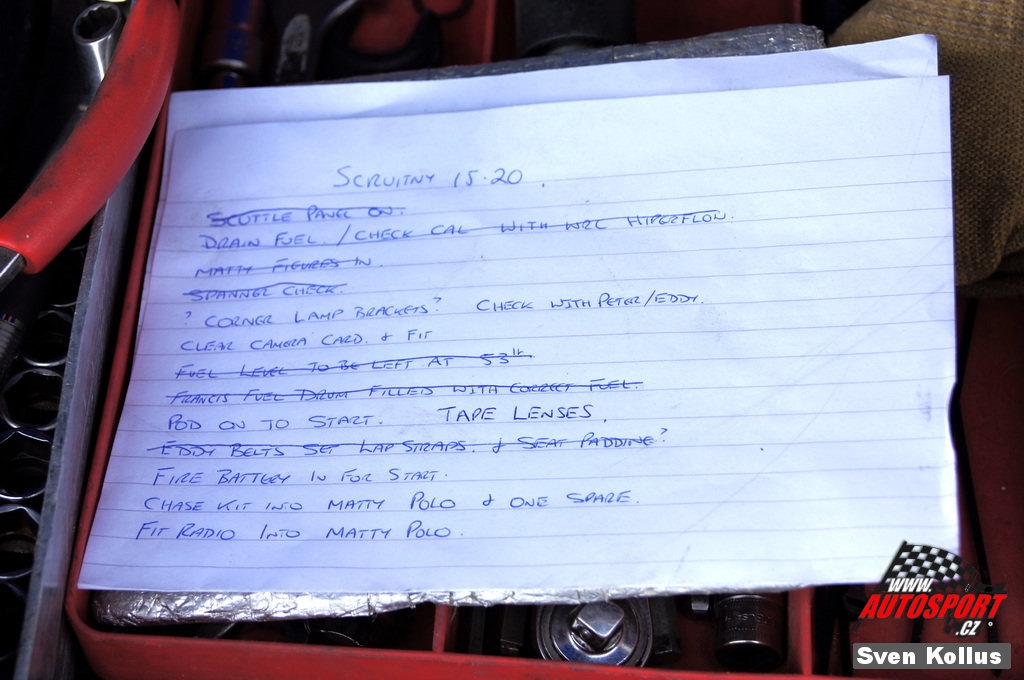 SCRUITNY 15.20.
SCUTTLE PANEL ON.
DRAIN FUEL. / CHECK CAL WITH WRC HIPERFLON.
MATTY FIGURES IN
SPANNER CHECK.
? CORNER LAMP BRACKETS? CHECK WITH PETER/EDDY.
CLEAR CAMERA CARD. & FIT
FUEL LEVEL TO BE LEFT AT 53 lt.
FRANCIS FUEL DRUM FILLED WITH CORRECT FUEL.
POD ON TO START. TAPE LENSES.
EDDY BELTS SET LAP STRAPS. & SEAT PADDING?
FIRE BATTERY IN FOR START.
CHASE KIT INTO MATTY POLO & ONE SPARE.
FIT RADIO INTO MATTY POLO.
WWW.
AUTOSPORT
.CZ
Sven Kollus